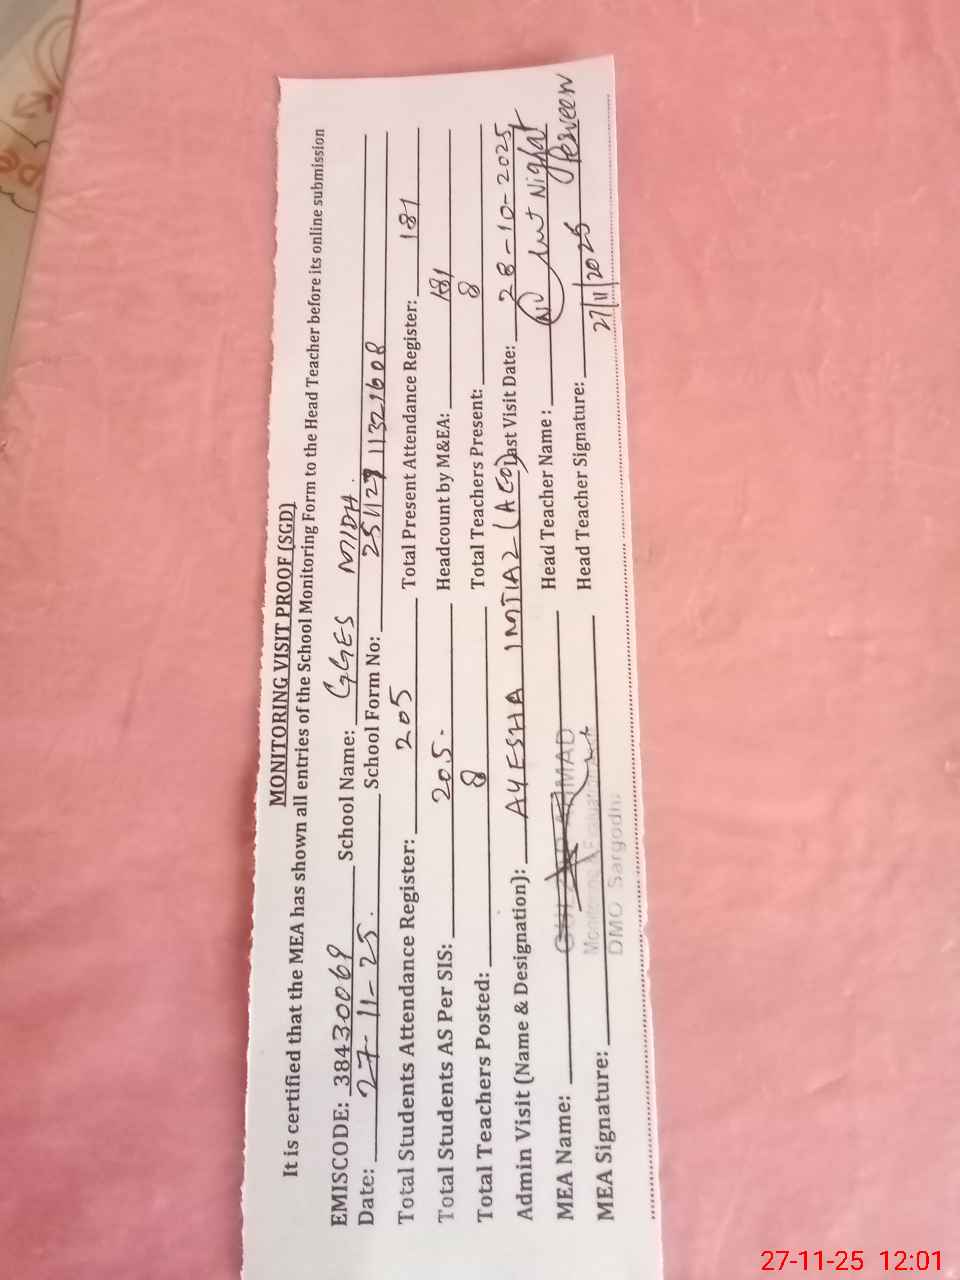 MONITORING VISIT PROOF (SGD)
It is certified that the MEA has shown all entries of the School Monitoring Form to the Head Teacher before its online submission
EMISCODE: 38430069 School Name: GGES MIDH.
Date: 27-11-25. School Form No: 251127 11321608
Total Students Attendance Register: 205 Total Present Attendance Register: 181
Total Students AS Per SIS: 205. Headcount by M&EA: 181
Total Teachers Posted: 8 Total Teachers Present: 8
Admin Visit (Name & Designation): AYESHA IMTIAZ (AEO) Last Visit Date: 28-10-2025
MEA Name: AHMAD Head Teacher Name : Nighat Perveen
Monitoring & Evaluation
MEA Signature: Head Teacher Signature:
DMO Sargodha
27/11/2025
27-11-25 12:01